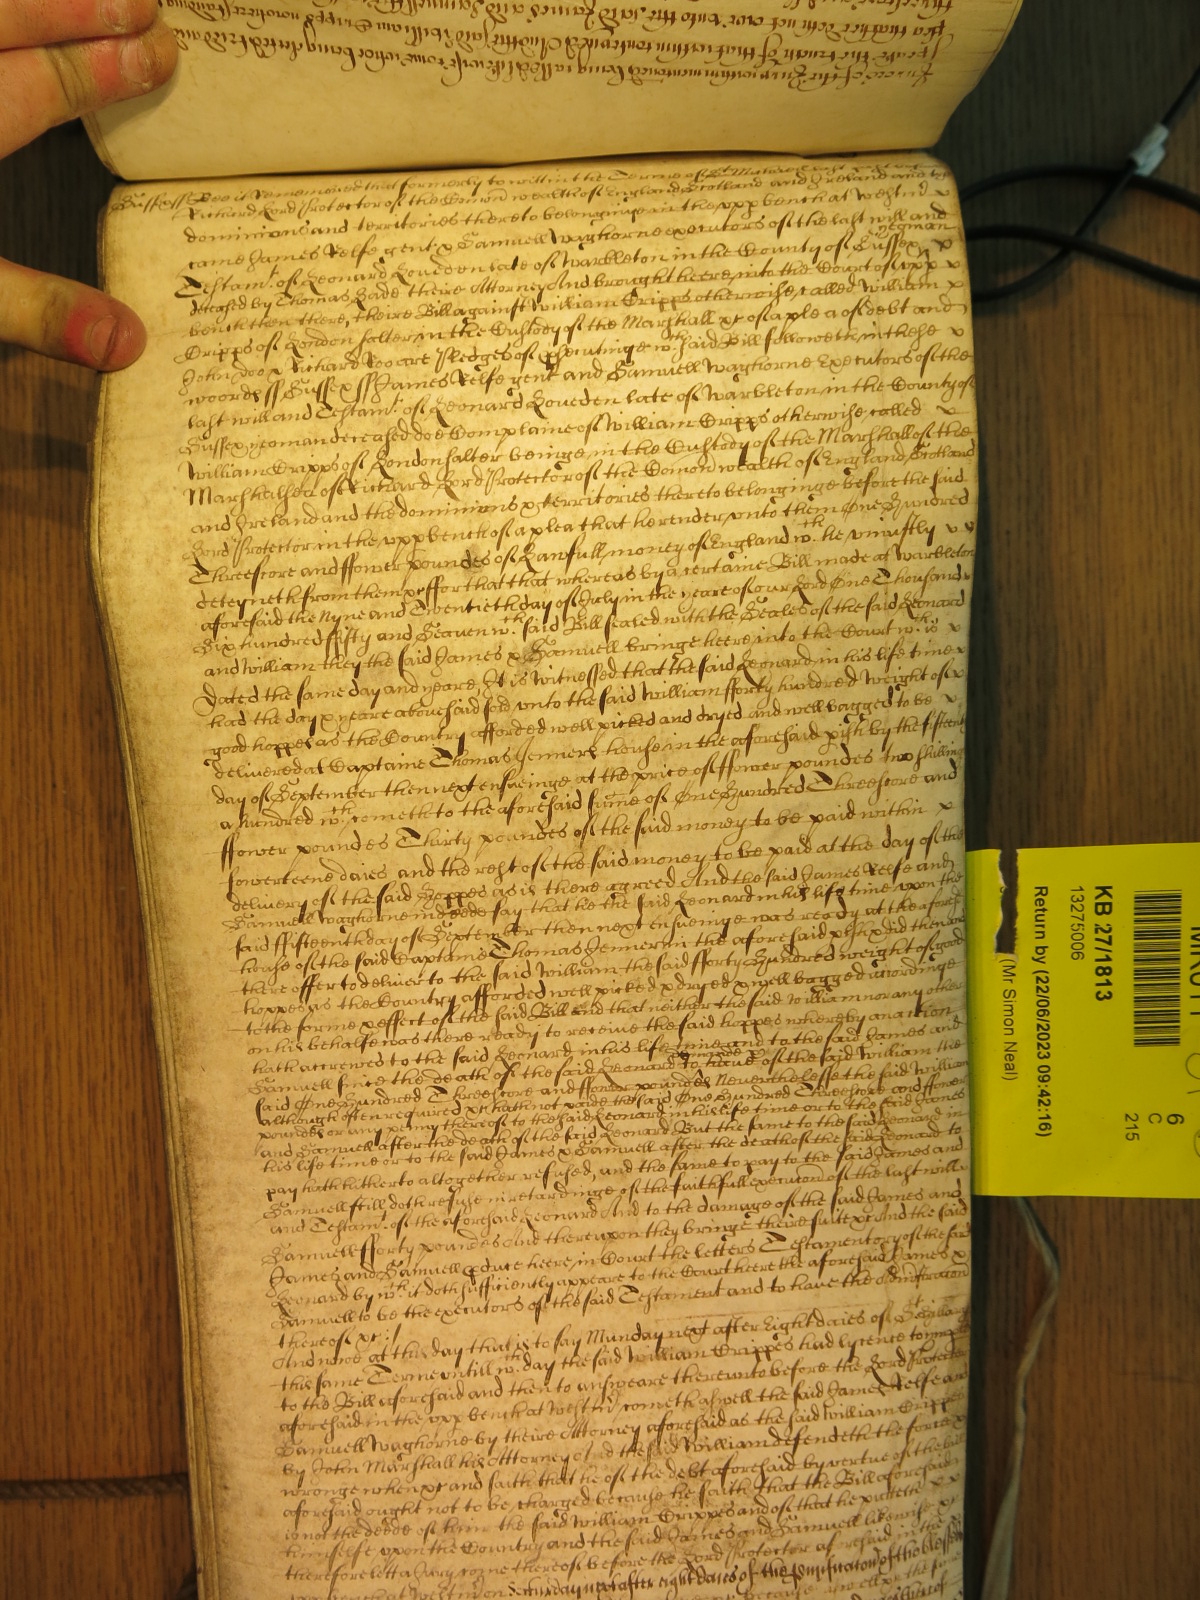 Sussex ss Bee it remembred that formerly to witt in the Terme of St Michaell last past before
Richard Lord Protector of the Comon wealth of England Scotland and Ireland and the
dominions and territories thereto belonginge in the upp bench at Westmr
came James Relfe gent & Samuell Waghorne executors of the last will and
Testamt. of Leonard Loueden late of Warbleton in the County of Sussex yeoman
deceased by Thomas Bade theire Attorney And brought heere into the Court of upp
bench then there, theire Bill against William Cripps otherwise called William
Cripps of London salter, in the Custody of the Marshall &c of a plea of debt and
John Doo & Richard Roo are Pledges of psecutinge wch said Bill followeth in these
woords ss Sussex ss James Relfe gent and Samuell Waghorne Executors of the
last will and Testamt. of Leonard Loueden late of Warbleton in the County of
Sussex yeoman deceased doe Complaine of William Cripps otherwise called
William Cripps of London salter beinge in the Custody of the Marshall of the
Marshalsea of Richard Lord Protector of the Comon wealth of England Scotland
and Ireland and the dominions & territories thereto belonginge before the said
Lord Protector in the upp bench of a plea that he render unto them One Hundred
Threescore and ffower poundes of Lawfull money of England wch. he uniustly
deteyneth from them &c ffor that that whereas by a certaine Bill made at Warbleton
aforesaid the Nyne and Twentieth day of July in the yeare of our Lord One Thousand
Six hundred ffifty and Seaven wch. said Bill sealed with the Seales of the said Leonard
and William they the said James & Samuell bringe heere into the Court wch. is
Dated the same day and yeare, It is witnessed that the said Leonard in his life time
had the day & yeare abovesaid sold unto the said William fforty hundred weight of
good hoppes as the Country afforded well picked and dryed and well bagged to be
delivered at Captaine Thomas Jenners house in the aforesaid pish by the fifteenth
day of September then next ensueinge at the price of ffower poundes two shillings
a hundred wch. cometh to the aforesaid sume of One Hundred Threescore and
ffower poundes Thirty poundes of the said money to be paid within
fowerteene daies and the rest of the said money to be paid at the day of the
delivery of the said Hoppes as is there agreed And the said James Relfe and
Samuell Waghorne in deede say that he the said Leonard in his life time upon the
said ffifteenth day of September then next ensueinge was ready at the aforesd
house of the said Captaine Thomas Jenner in the aforesaid pish & did then and
there offer to deliver to the said William the said fforty Hundred weight of good
hoppes as the Country afforded well picked & dryed & well bagged accordinge
to the forme & effect of the said Bill And that neither the said William nor any other
on his behalfe was there ready to receive the said hoppes whereby an action
hath accrewed to the said Leonard in his life time and to the said James and
Samuell since the death of the said Leonard to demande & have of the said William the
said One Hundred Threescore and ffower poundes Neverthelesse the said William
although often required &c hath not paide the said One Hundred Threescore and ffower
poundes or any penny thereof to the said Leonard in his life time or to the said James
and Samuell after the death of the said Leonard But the same to the said Leonard in
his life time or to the said James & Samuell after the death of the said Leonard to
pay hath hitherto altogether refused, and the same to pay to the said James and
Samuell still doth refuse in retardinge of the faithfull execucon of the last will
and Testamt. of the aforesaid Leonard And to the damage of the said James and
Samuell fforty poundes And thereupon they bringe theire suite &c And the said
James and Samuell pduce heere in Court the letters Testamentory of the said
Leonard by wch. it doth sufficiently appeare to the Court heere the aforesaid James &
Samuell to be the executors of the said Testament and to have the Administracon
thereof &c:/
And nowe at this day that is to say Munday next after Eight daies of St Hillary
this same Terme untill wch day the said William Cripps had lycence to imple
to the Bill aforesaid and then to answeare thereunto before the Lord Protector
aforesaid in the upp bench at Westmr cometh aswell the said James Relfe and
Samuell Waghorne by theire Attorney aforesaid as the said William Cripps
by John Marshall his Attorney And the said William defendeth the force &
wronge when &c and saith that he of the debt aforesaid by vertue of the bill
aforesaid ought not to be charged because he saith that the Bill aforesaid
is not the deede of him the said William Cripps and of that he putteth
himselfe upon the Country and the said James and Samuell likewise &c
therefore lett a Jury come thereof before the Lord Protector aforesaid in the
upper bench at Westmr on Saturday next after eight daies of the purificacon of the blessed
KB 27/1813
13275006
Return by (22/06/2023 09:42:16)
(Mr Simon Neal)
6
C
215